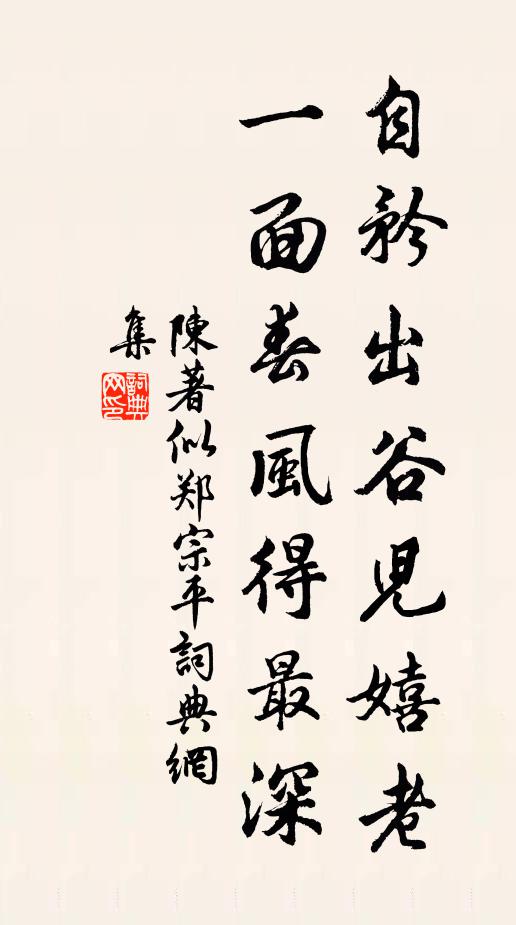 自矜出谷兒嬉老
一面春風得最深
陳著似郑宗平詞典網
集
詞典网印